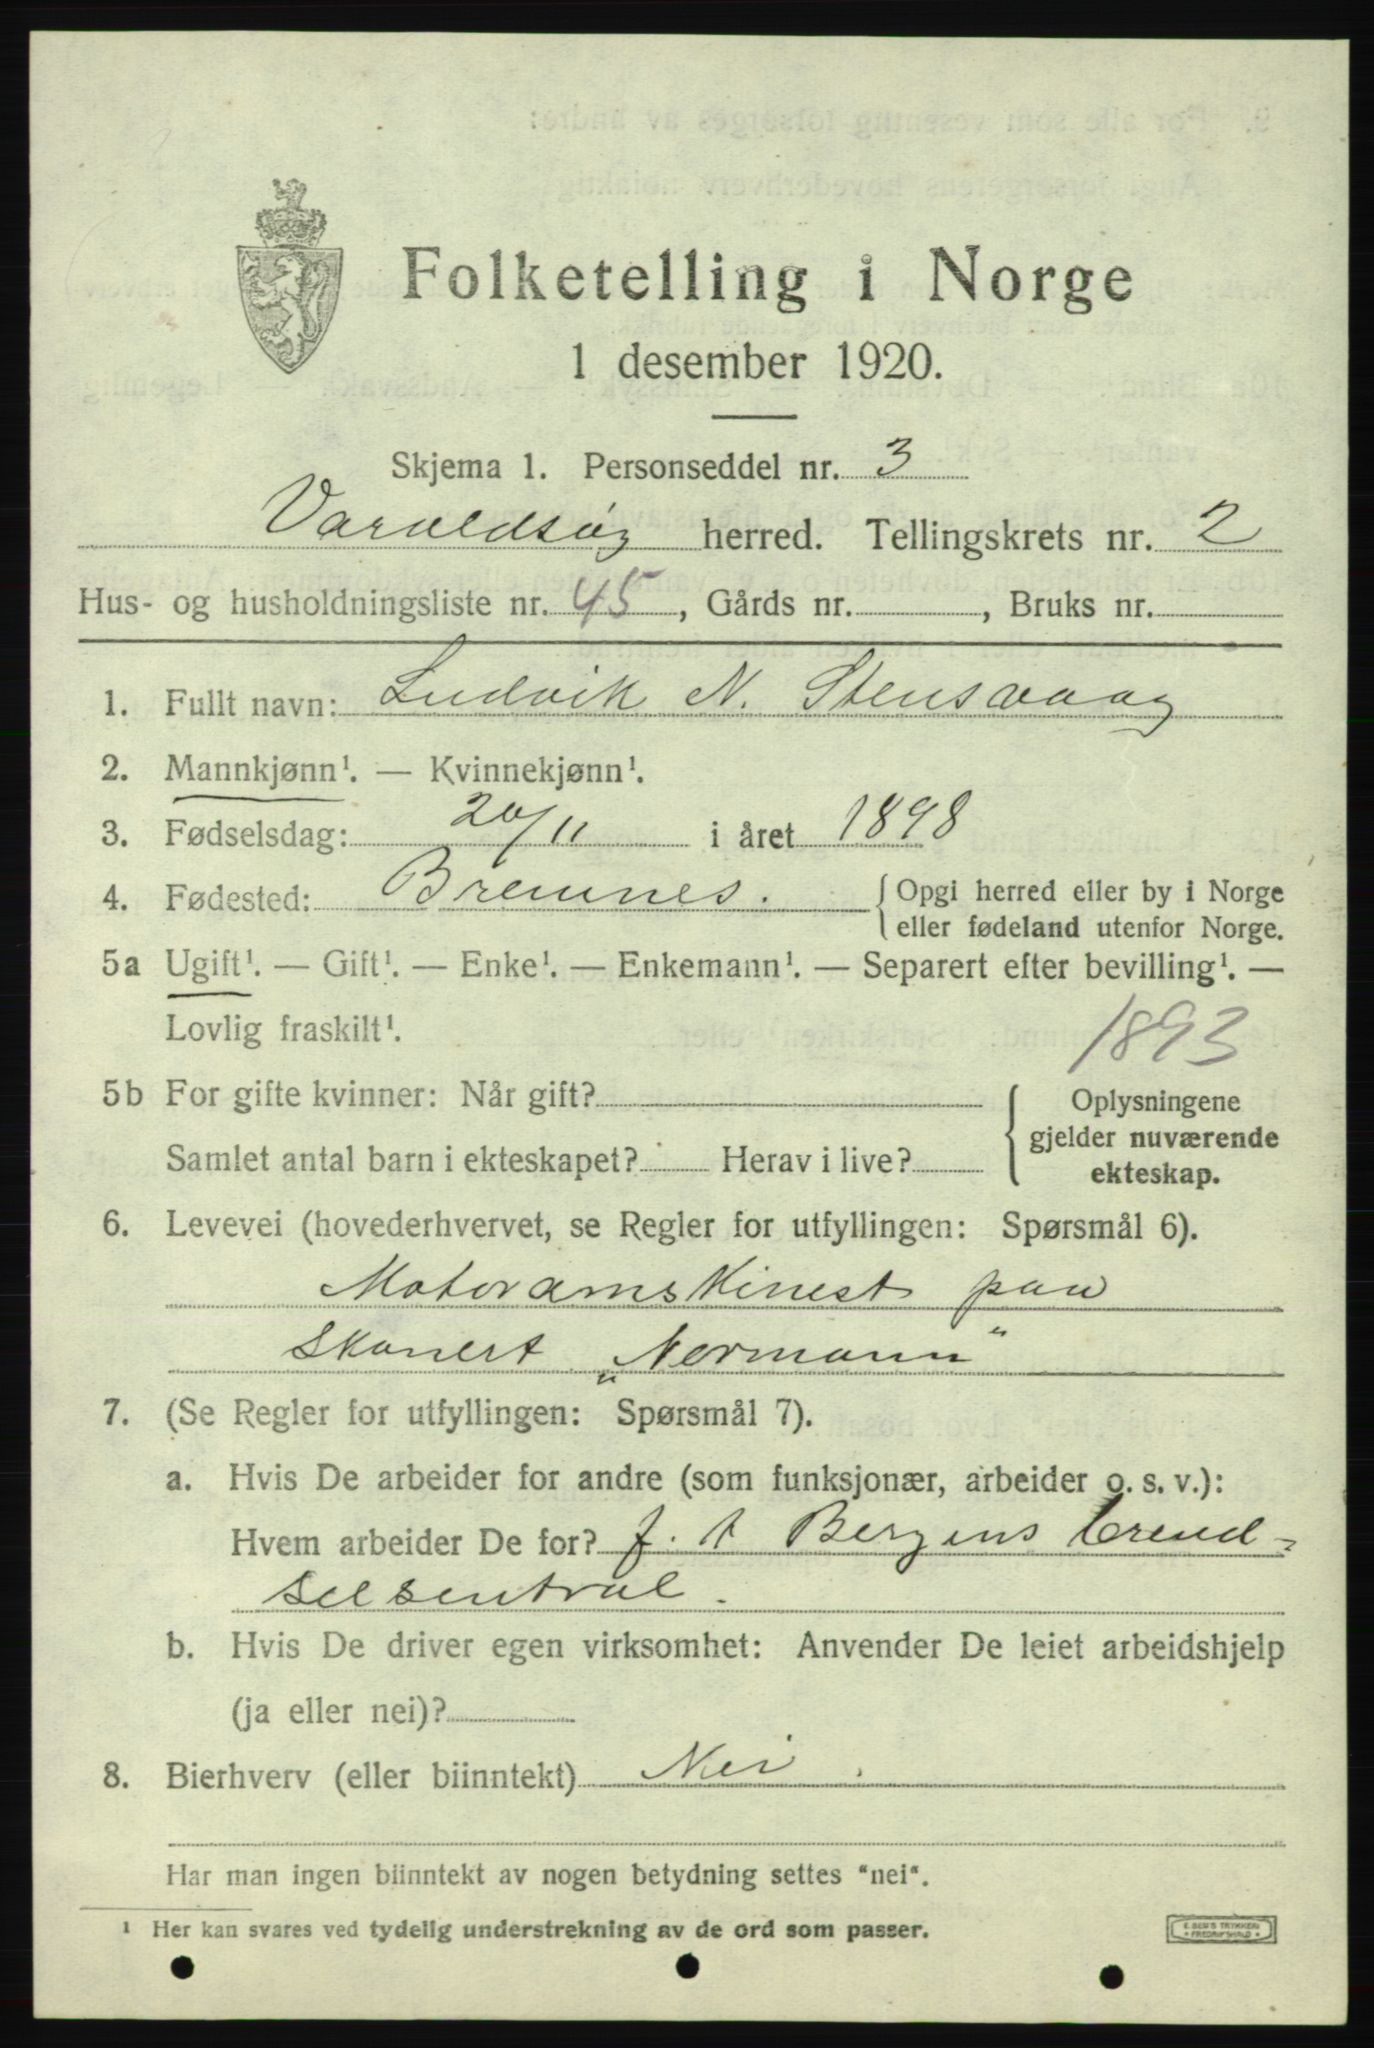 Folketelling i Norge
1 desember 1920.
Skjema 1. Personseddel nr. 3
Varaldsøy herred. Tellingskrets nr. 2
Hus- og husholdningsliste nr. 45, Gårds nr. , Bruks nr.
1. Fullt navn: Ludvik N. Stensvaag
2. Mannkjønn¹. — Kvinnekjønn¹.
3. Fødselsdag: 20/11 i året 1898
4. Fødested: Bremnes. { Opgi herred eller by i Norge
eller fødeland utenfor Norge.
5a Ugift¹. — Gift¹. — Enke¹. — Enkemann¹. — Separert efter bevilling¹. —
Lovlig fraskilt¹.
1893
5b For gifte kvinner: Når gift?
Samlet antal barn i ekteskapet? Herav i live?
Oplysningene
gjelder nuværende
ekteskap.
6. Levevei (hovederhvervet, se Regler for utfyllingen: Spørsmål 6).
Motoramskinest paa
skonert „Normann"
7. (Se Regler for utfyllingen: Spørsmål 7).
a. Hvis De arbeider for andre (som funksjonær, arbeider o. s. v.):
Hvem arbeider De for? f. t Bergens brend-
selsentral.
b. Hvis De driver egen virksomhet: Anvender De leiet arbeidshjelp
(ja eller nei)?
8. Bierhverv (eller biinntekt) Nei.
Har man ingen biinntekt av nogen betydning settes "nei".
¹ Her kan svares ved tydelig understrekning av de ord som passer.
E. SEM'S TRYKKERI
FREDRIKSHALD